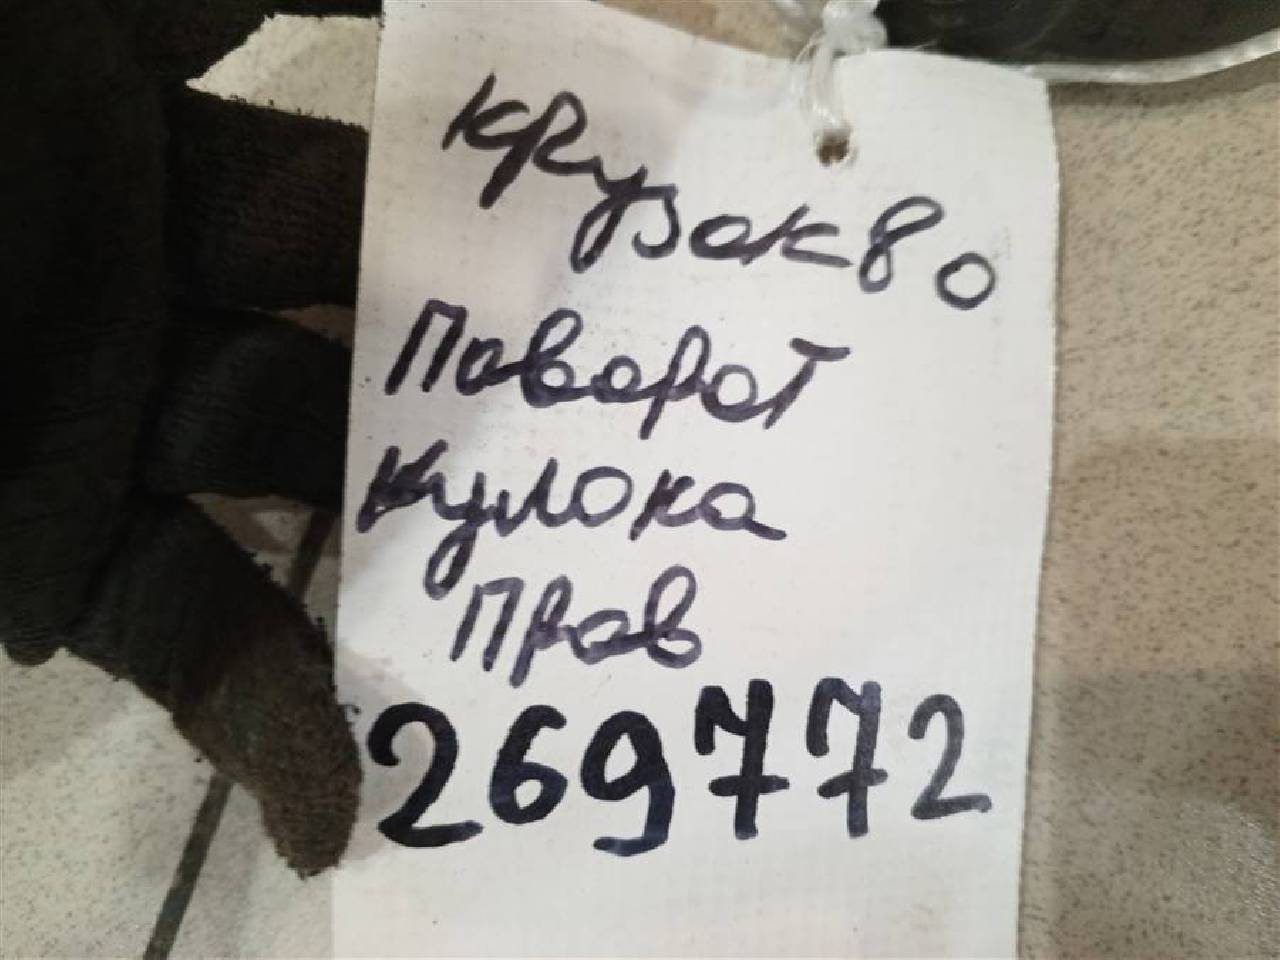 крузак 80
Поворот
Кулока
Прав
269772